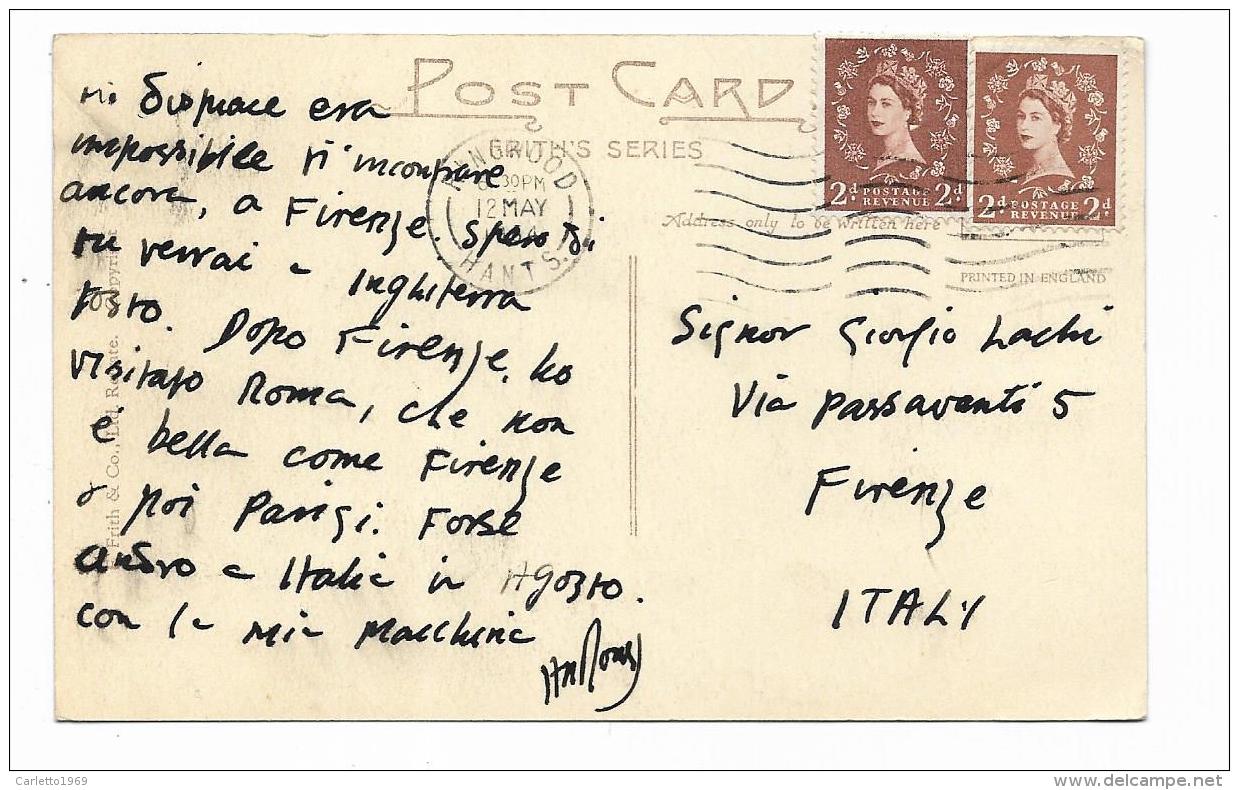 POST CARD
FRITH'S SERIES
Address only to be written here
PRINTED IN ENGLAND
2d POSTAGE REVENUE 2d
2d POSTAGE REVENUE 2d
RINGWOOD
30PM
12 MAY
HANTS.
Mi dispiace era
impossibile ti incontrare
ancora, a Firenze. Spero di
tu verrai a Inghiterra
tosto. Dopo Firenze, ho
visitato Roma, che non
e' bella come Firenze
poi Parigi. Forse
andro a Italia in Agosto.
con la mia Macchina
Signor Giorgio Lachi
Via Passaventi 5
Firenze
ITALY
Frith & Co., Ltd., Reigate.
Carletto1969
delcampe.net